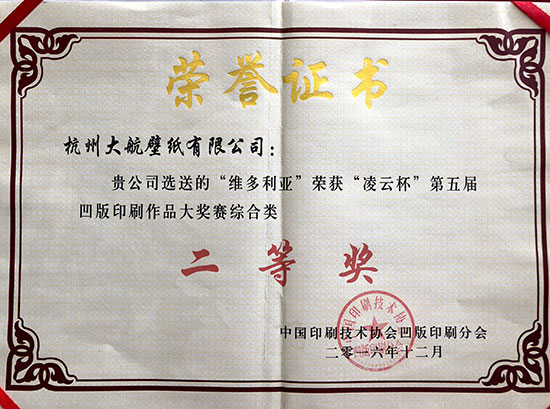 荣誉证书
杭州大航壁纸有限公司：
贵公司选送的“维多利亚”荣获“凌云杯”第五届
凹版印刷作品大奖赛综合类
二等奖
中国印刷技术协会凹版印刷分会
二零一六年十二月